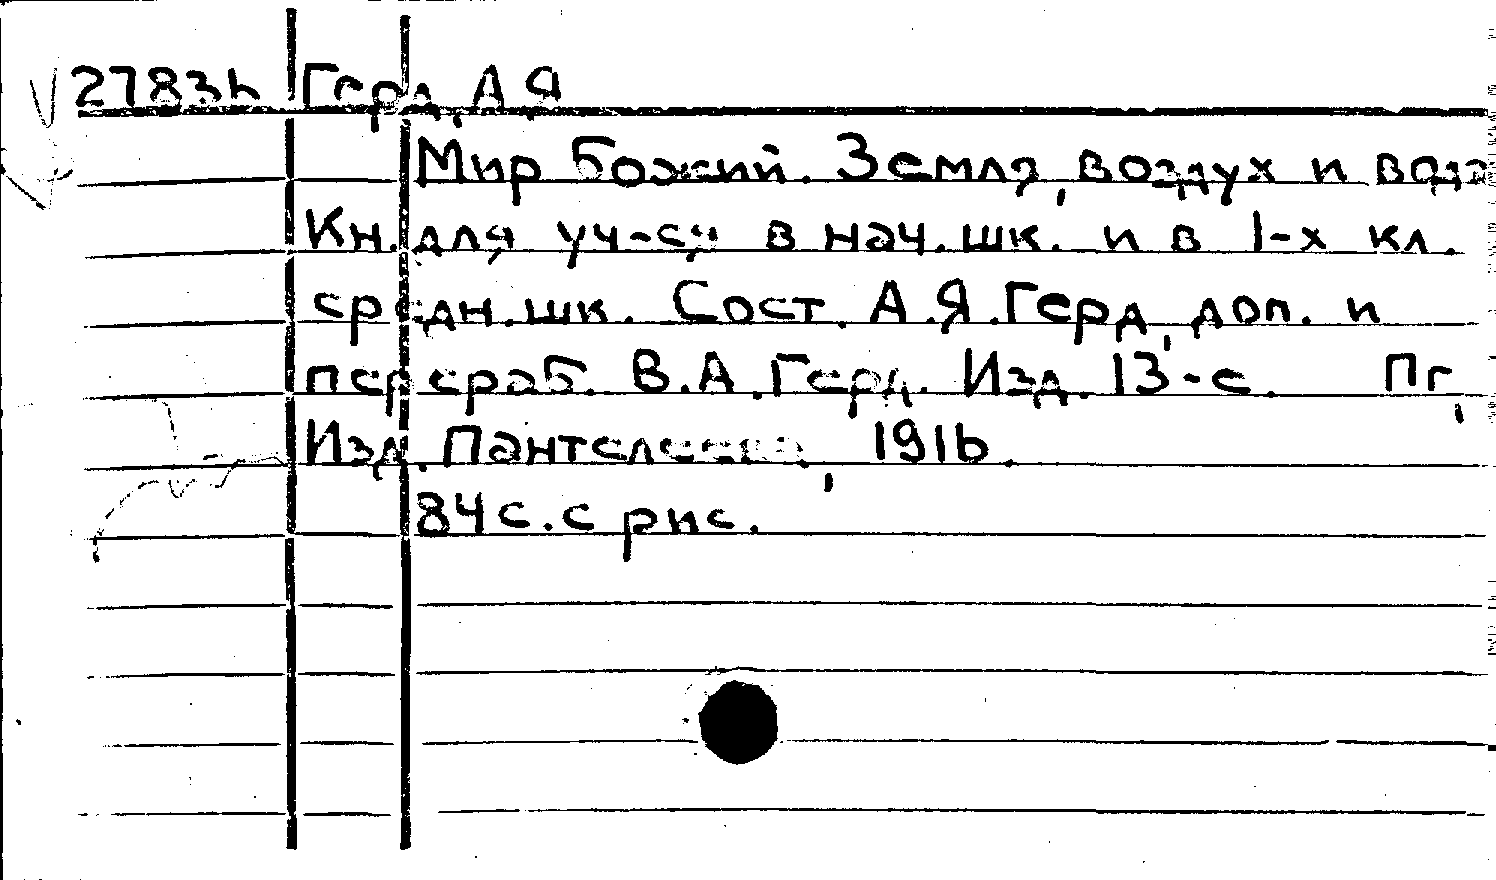 27836 Герд, А.Я
Мир божий. Земля, воздух и вода
Кн. для уч-ся в нач. шк. и в 1-х кл.
средн. шк. Сост. А.Я. Герд, доп. и
перераб. В.А. Герд. Изд. 13-е. Пг,
Изд. Пантелеева, 1916.
84 с. с рис.